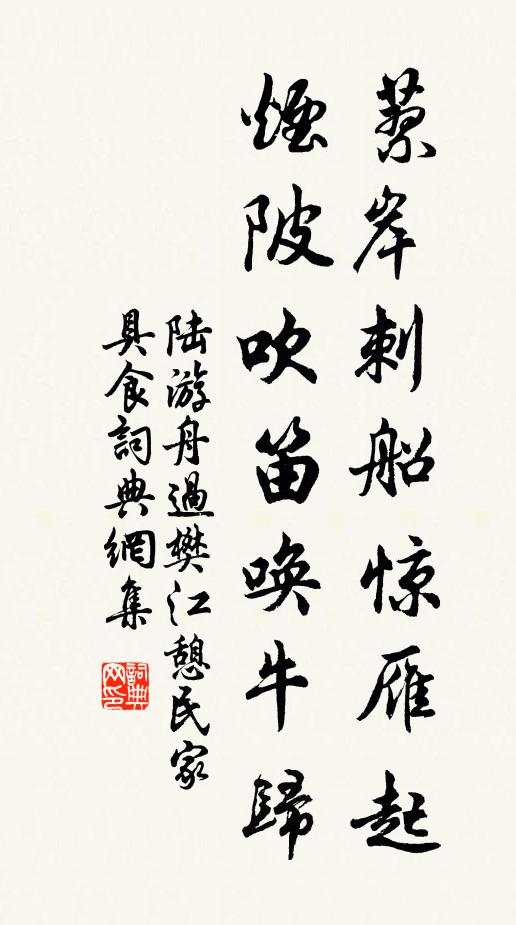 蓼岸刺船惊雁起
煙陂吹笛唤牛歸
陆游舟過樊江憩民家
具食詞典網集
詞典
网印